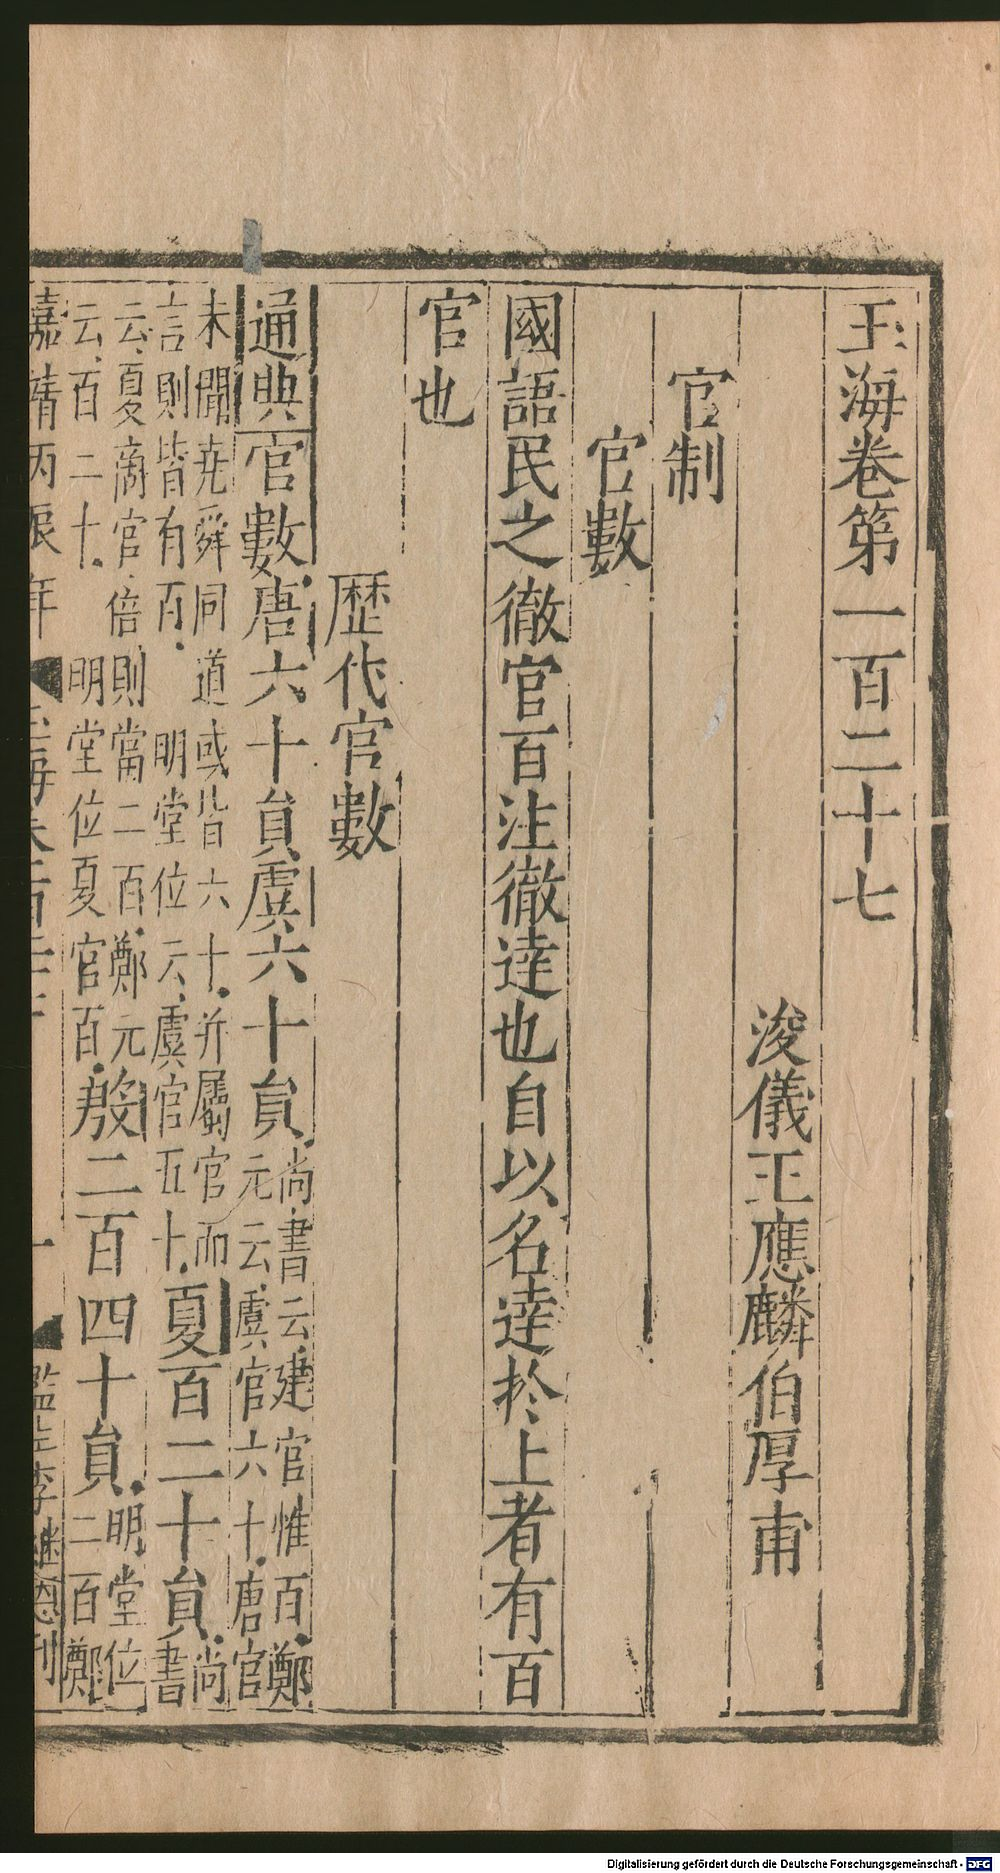 玉海卷第一百二十七
浚儀王應麟伯厚甫
官制
官數
國語民之徹官百注徹逹也自以名逹於上者有百
官也
歷代官數
通典官數唐六十負虞六十負尚書云建官惟百鄭
元云虞官六十唐官
未聞堯舜同道或皆六十并屬官而
言則皆有百明堂位云虞官五十夏百二十負尚
書
云夏商官倍則當二百鄭元
云百二十明堂位夏官百殷二百四十負明堂位
二百鄭
嘉靖丙辰年
玉海卷一百二十七
一
監生李繼恩刊
Digitalisierung gefördert durch die Deutsche Forschungsgemeinschaft - DFG